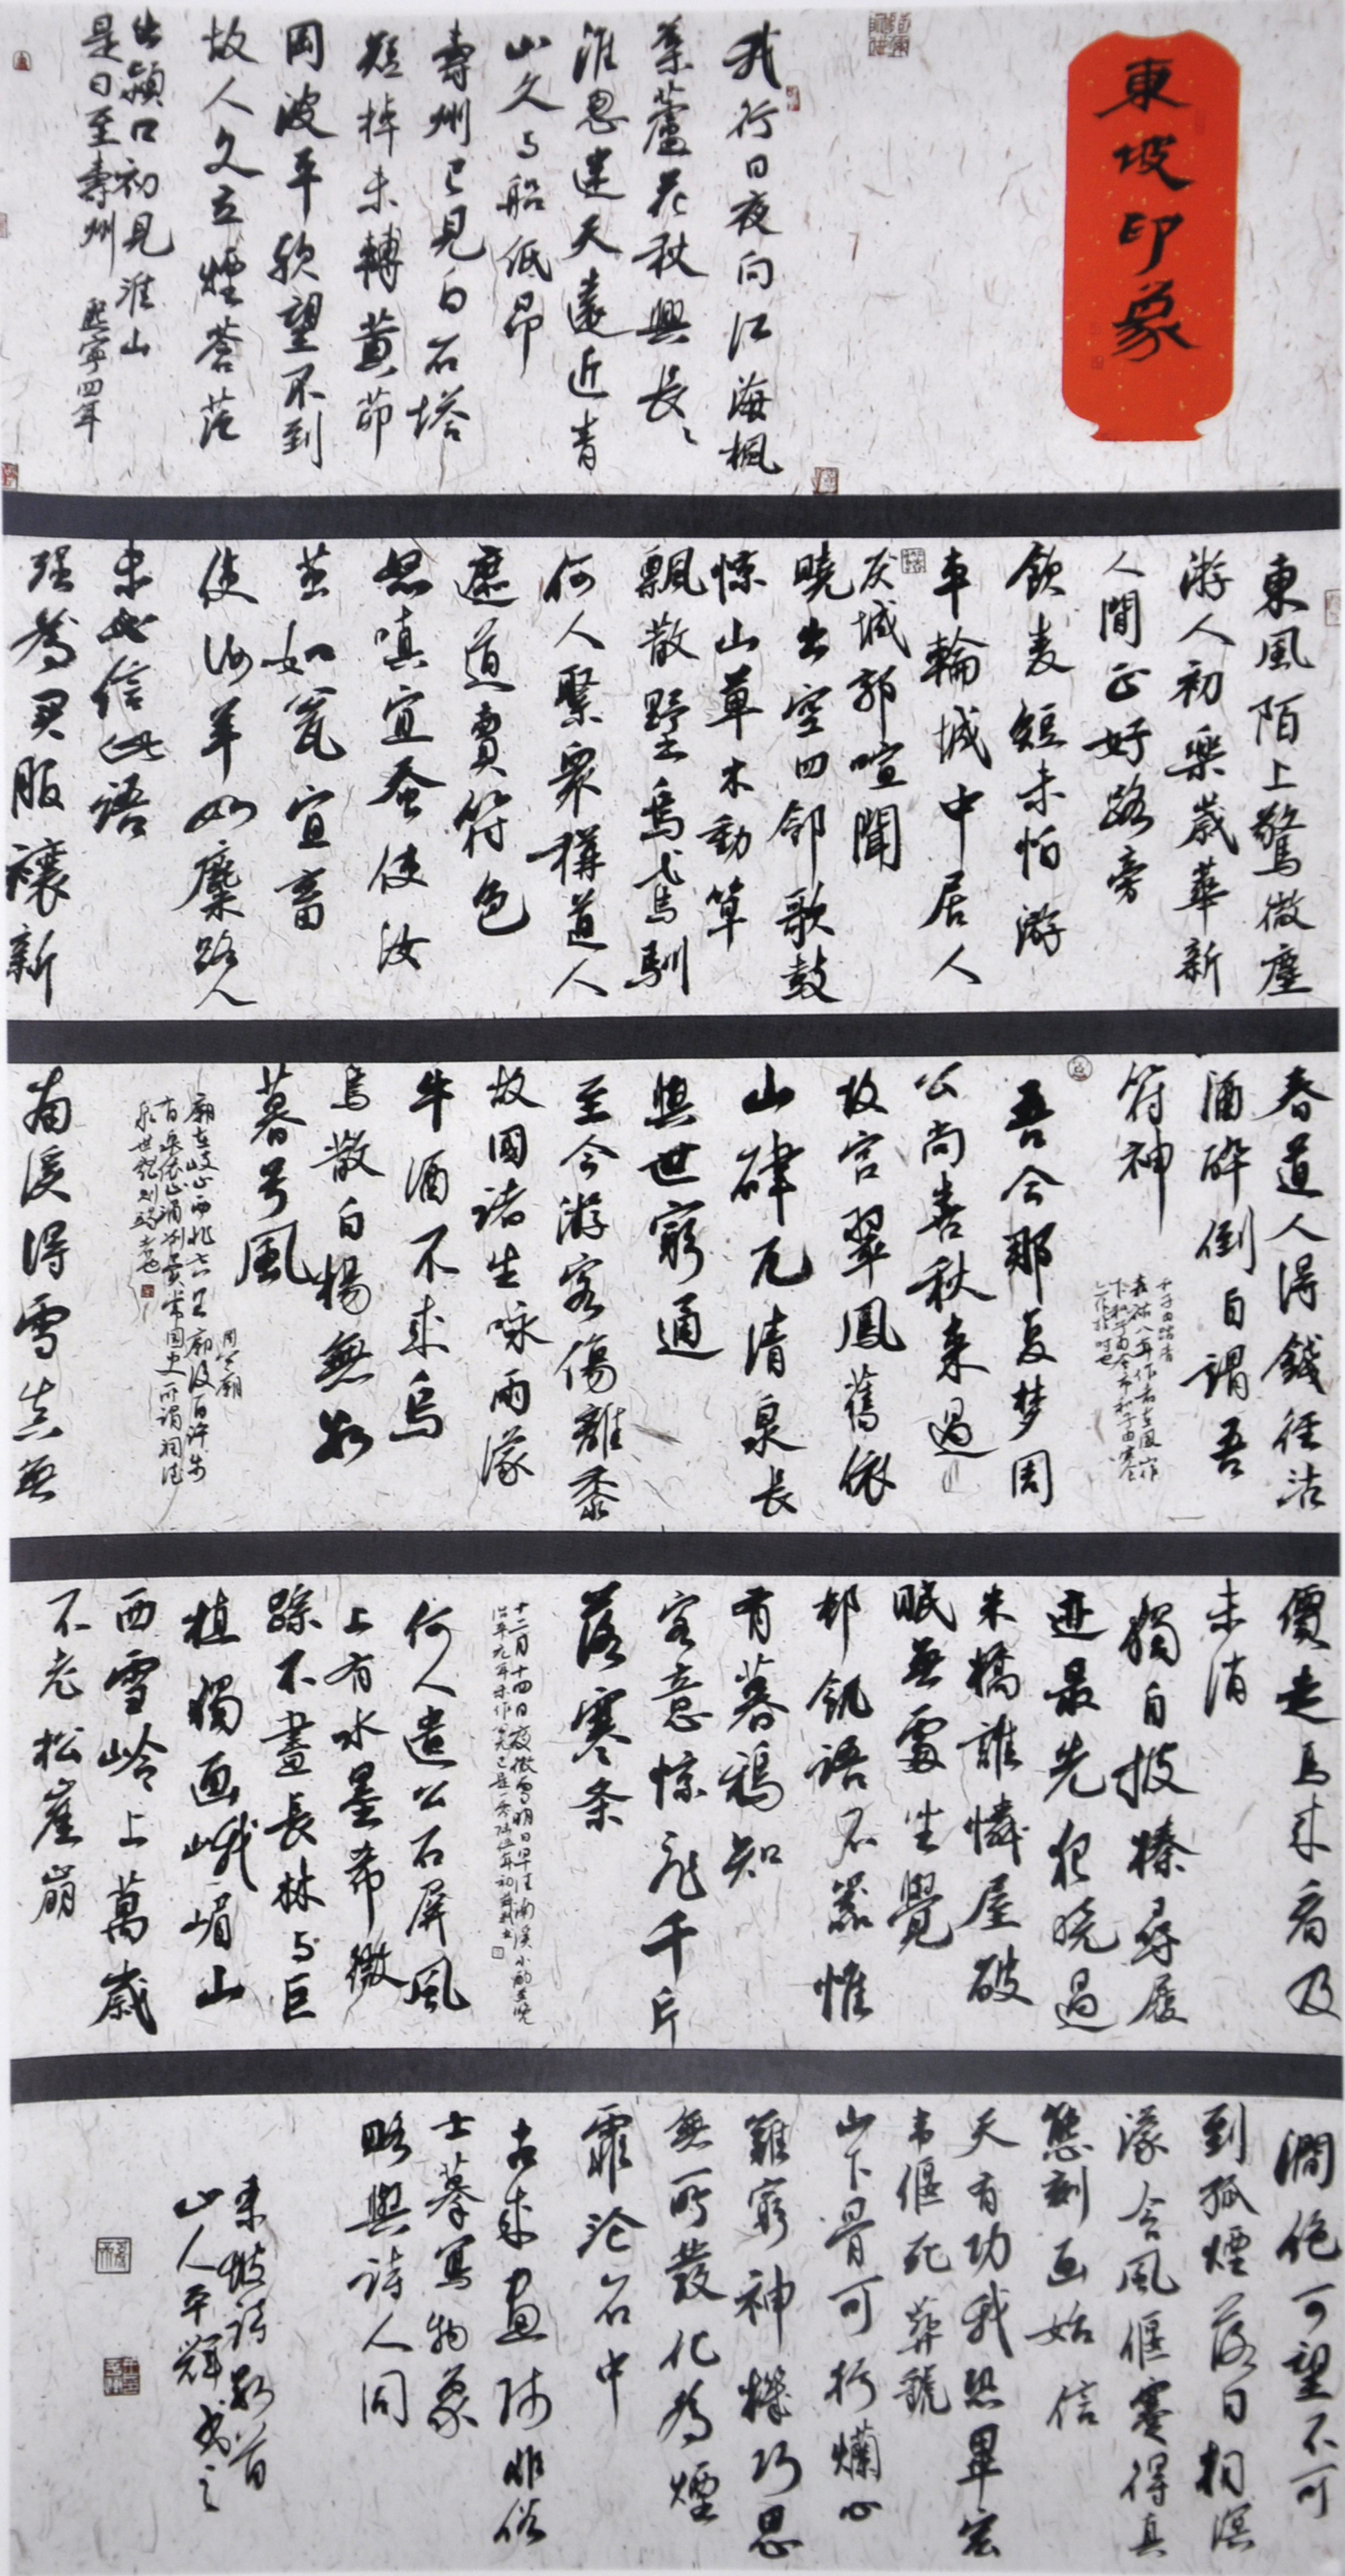 東坡印象
我行日夜向江海楓
葉蘆花秋興長〻
淮忽迷天遠近青
山久与船低昂
壽州已見白石塔
短棹未轉黃茆
岡波平軟望不到
故人久立煙蒼茫
出潁口初見淮山
是日至壽州 熙寧四年
東風陌上驚微塵
游人初樂歲華新
人閒正好路旁
飲麦短未怕游
車輪城中居人
厌城郭喧闐
曉出空四鄰歌鼓
惊山草木動箪
瓢散野烏鳶馴
何人聚衆稱道人
遮道賣符色
怒嗔宜蚕使汝
茧如瓮宜畜
使汝羊如麇路人
未必信此語
强為買服禳新
春道人得錢徑沽
酒醉倒自謂吾
符神
吾今那复梦周
公尚喜秋来過
故宫翠鳳舊依
山硉兀清泉長
與世窮通
至今游客傷離黍
故國諸生咏雨濛
牛酒不来烏
鳥散白楊無數
暮号風
南溪得雪真無
價走馬来看及
未消
獨自披榛尋履
迹最先犯晓過
朱橋誰憐屋破
眠無處坐覺
邨飢語不嚣惟
有暮鴉知
客意惊飛千片
落寒条
何人遺公石屏風
上有水墨希微
踪不畫長林与巨
植獨画峨嵋山
西雪岭上萬歲
不老松崖崩
澗絶可望不可
到孤煙落日相溟
濛含風偃蹇得真
態刻画始信
天有功我恐畢宏
韦偃死葬虢
山下骨可朽爛心
難窮神機巧思
無所發化為煙
霏沦石中
古来画師非俗
士摹寫物象
略與詩人同
東坡詩數首
山人平輝書之